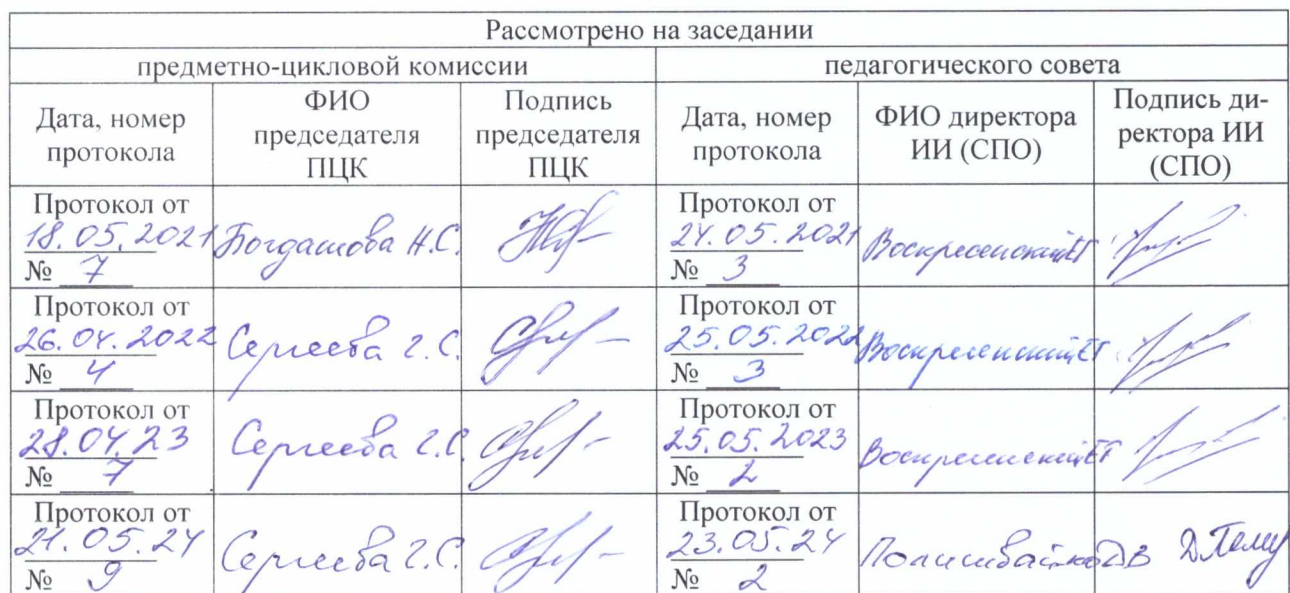 Рассмотрено на заседании
предметно-цикловой комиссии педагогического совета
Дата, номер протокола
ФИО председателя ПЦК
Подпись председателя ПЦК
Дата, номер протокола
ФИО директора ИИ (СПО)
Подпись ди-
ректора ИИ
(СПО)
Протокол от
18.05.2021
№ 7
Богдашова Н.С.
Протокол от
24.05.2021
№ 3
Воскресенский ЕГ
Протокол от
26.04.2022
№ 4
Сергеева Г.С.
Протокол от
25.05.2022
№ 3
Воскресенский ЕГ
Протокол от
28.04.23
№ 7
Сергеева Г.С.
Протокол от
25.05.2023
№ 2
Воскресенский ЕГ
Протокол от
21.05.24
№ 9
Сергеева Г.С.
Протокол от
23.05.24
№ 2
ДВ